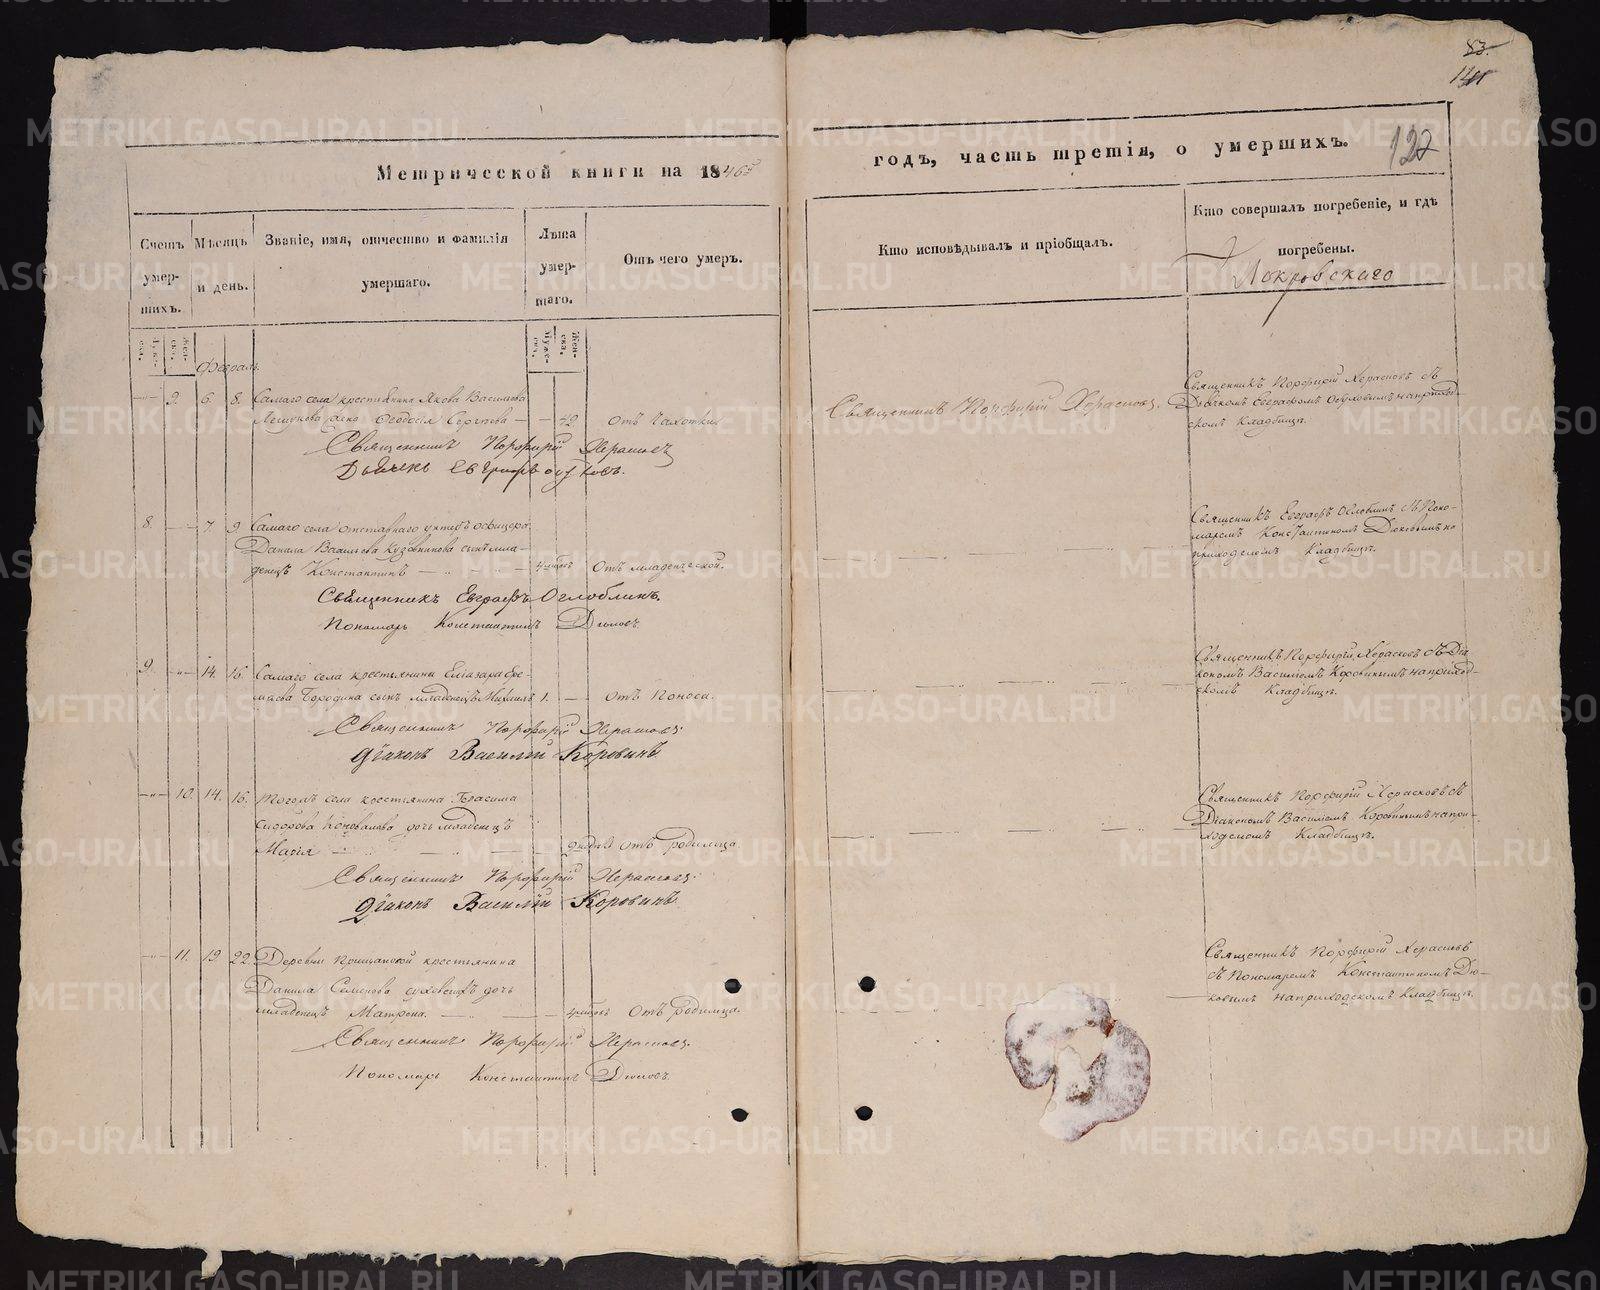 83.
141
122
Метрической книги на 1846й
годъ, часть третія, о умершихъ.
Счетъ умер-шихъ.
Мѣсяцъ и день.
Званіе, имя, отчество и фамилія умершаго.
Лѣта умер-шаго.
Отъ чего умеръ.
Кто исповѣдывалъ и пріобщалъ.
Кто совершалъ погребеніе, и гдѣ погребены.
Покровскаго
Муже-ска.
Жен-ска.
Муже-ска.
Жен-ска.
Февраль
9. 6. 8. Самаго села крестьянина Якова Васильева
жена Феодосія Сергѣева — 42 отъ чахотки
Священникъ Порфирій Херасковъ.
Священникъ Порфирій Херасковъ съ
Дьячкомъ Евграфомъ на приход-
скомъ Кладбищѣ.
Священникъ Порфирій Херасковъ
Дьячекъ Евграфъ
8. 7. 9 Самаго села отставнаго унтеръ офицера
Данила Васильева Кузовникова сынъ мла-
денецъ Константинъ — 4 отъ младенческой.
Священникъ Евграфъ Оглоблинъ съ Поно-
маремъ Константиномъ Дюковымъ на
приходскомъ Кладбищѣ.
Священникъ Евграфъ Оглоблинъ.
Пономарь Константинъ Дюковъ.
9. 14. 16. Самаго села крестьянина Еліазара Ере-
мѣева Бородина сынъ младенецъ Михаилъ 1. — отъ поноса.
Священникъ Порфирій Херасковъ съ Діа-
кономъ Василіемъ Коровинымъ на приход-
скомъ Кладбищѣ.
Священникъ Порфирій Херасковъ
Діаконъ Василій Коровинъ
10. 14. 16. Тогожъ села крестьянина Герасима
Сидорова Коновалова дочь младенецъ
Марія — отъ родимца
Священникъ Порфирій Херасковъ съ
Діакономъ Василіемъ Коровинымъ на при-
ходскомъ Кладбищѣ.
Священникъ Порфирій Херасковъ
Діаконъ Василій Коровинъ
11. 19. 22. Деревни крестьянина
Данила Семенова дочь
младенецъ Матрона. — отъ родимца.
Священникъ Порфирій Херасковъ
съ Пономаремъ Константиномъ Дю-
ковымъ на приходскомъ Кладбищѣ.
Священникъ Порфирій Херасковъ
Пономарь Константинъ Дюковъ.
METRIKI.GASO-URAL.RU